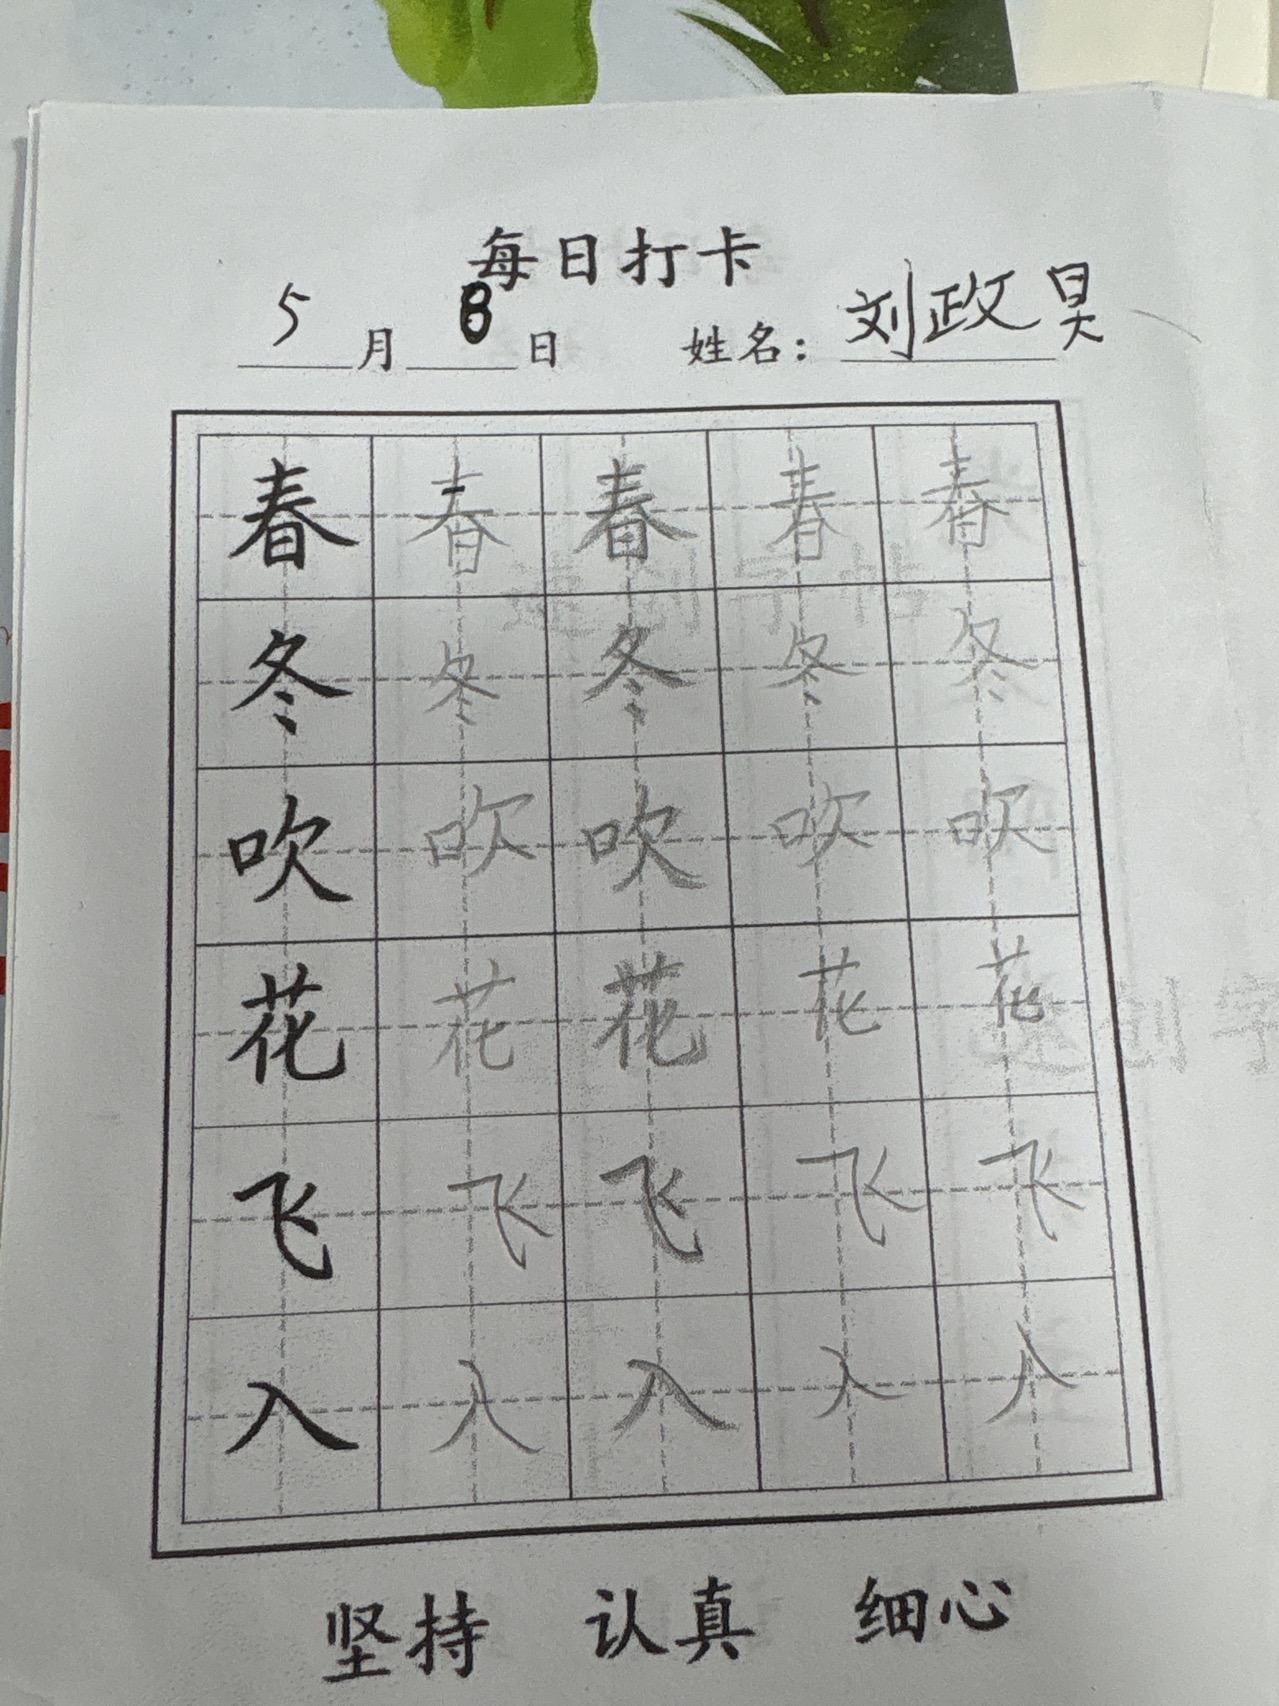 每日打卡
5月8日 姓名：刘政昊
春 春 春 春 春
速创字帖
冬 冬 冬 冬 冬
吹 吹 吹 吹 吹
花 花 花 花 花
速创字
飞 飞 飞 飞 飞
入 入 入 入 入
坚持 认真 细心